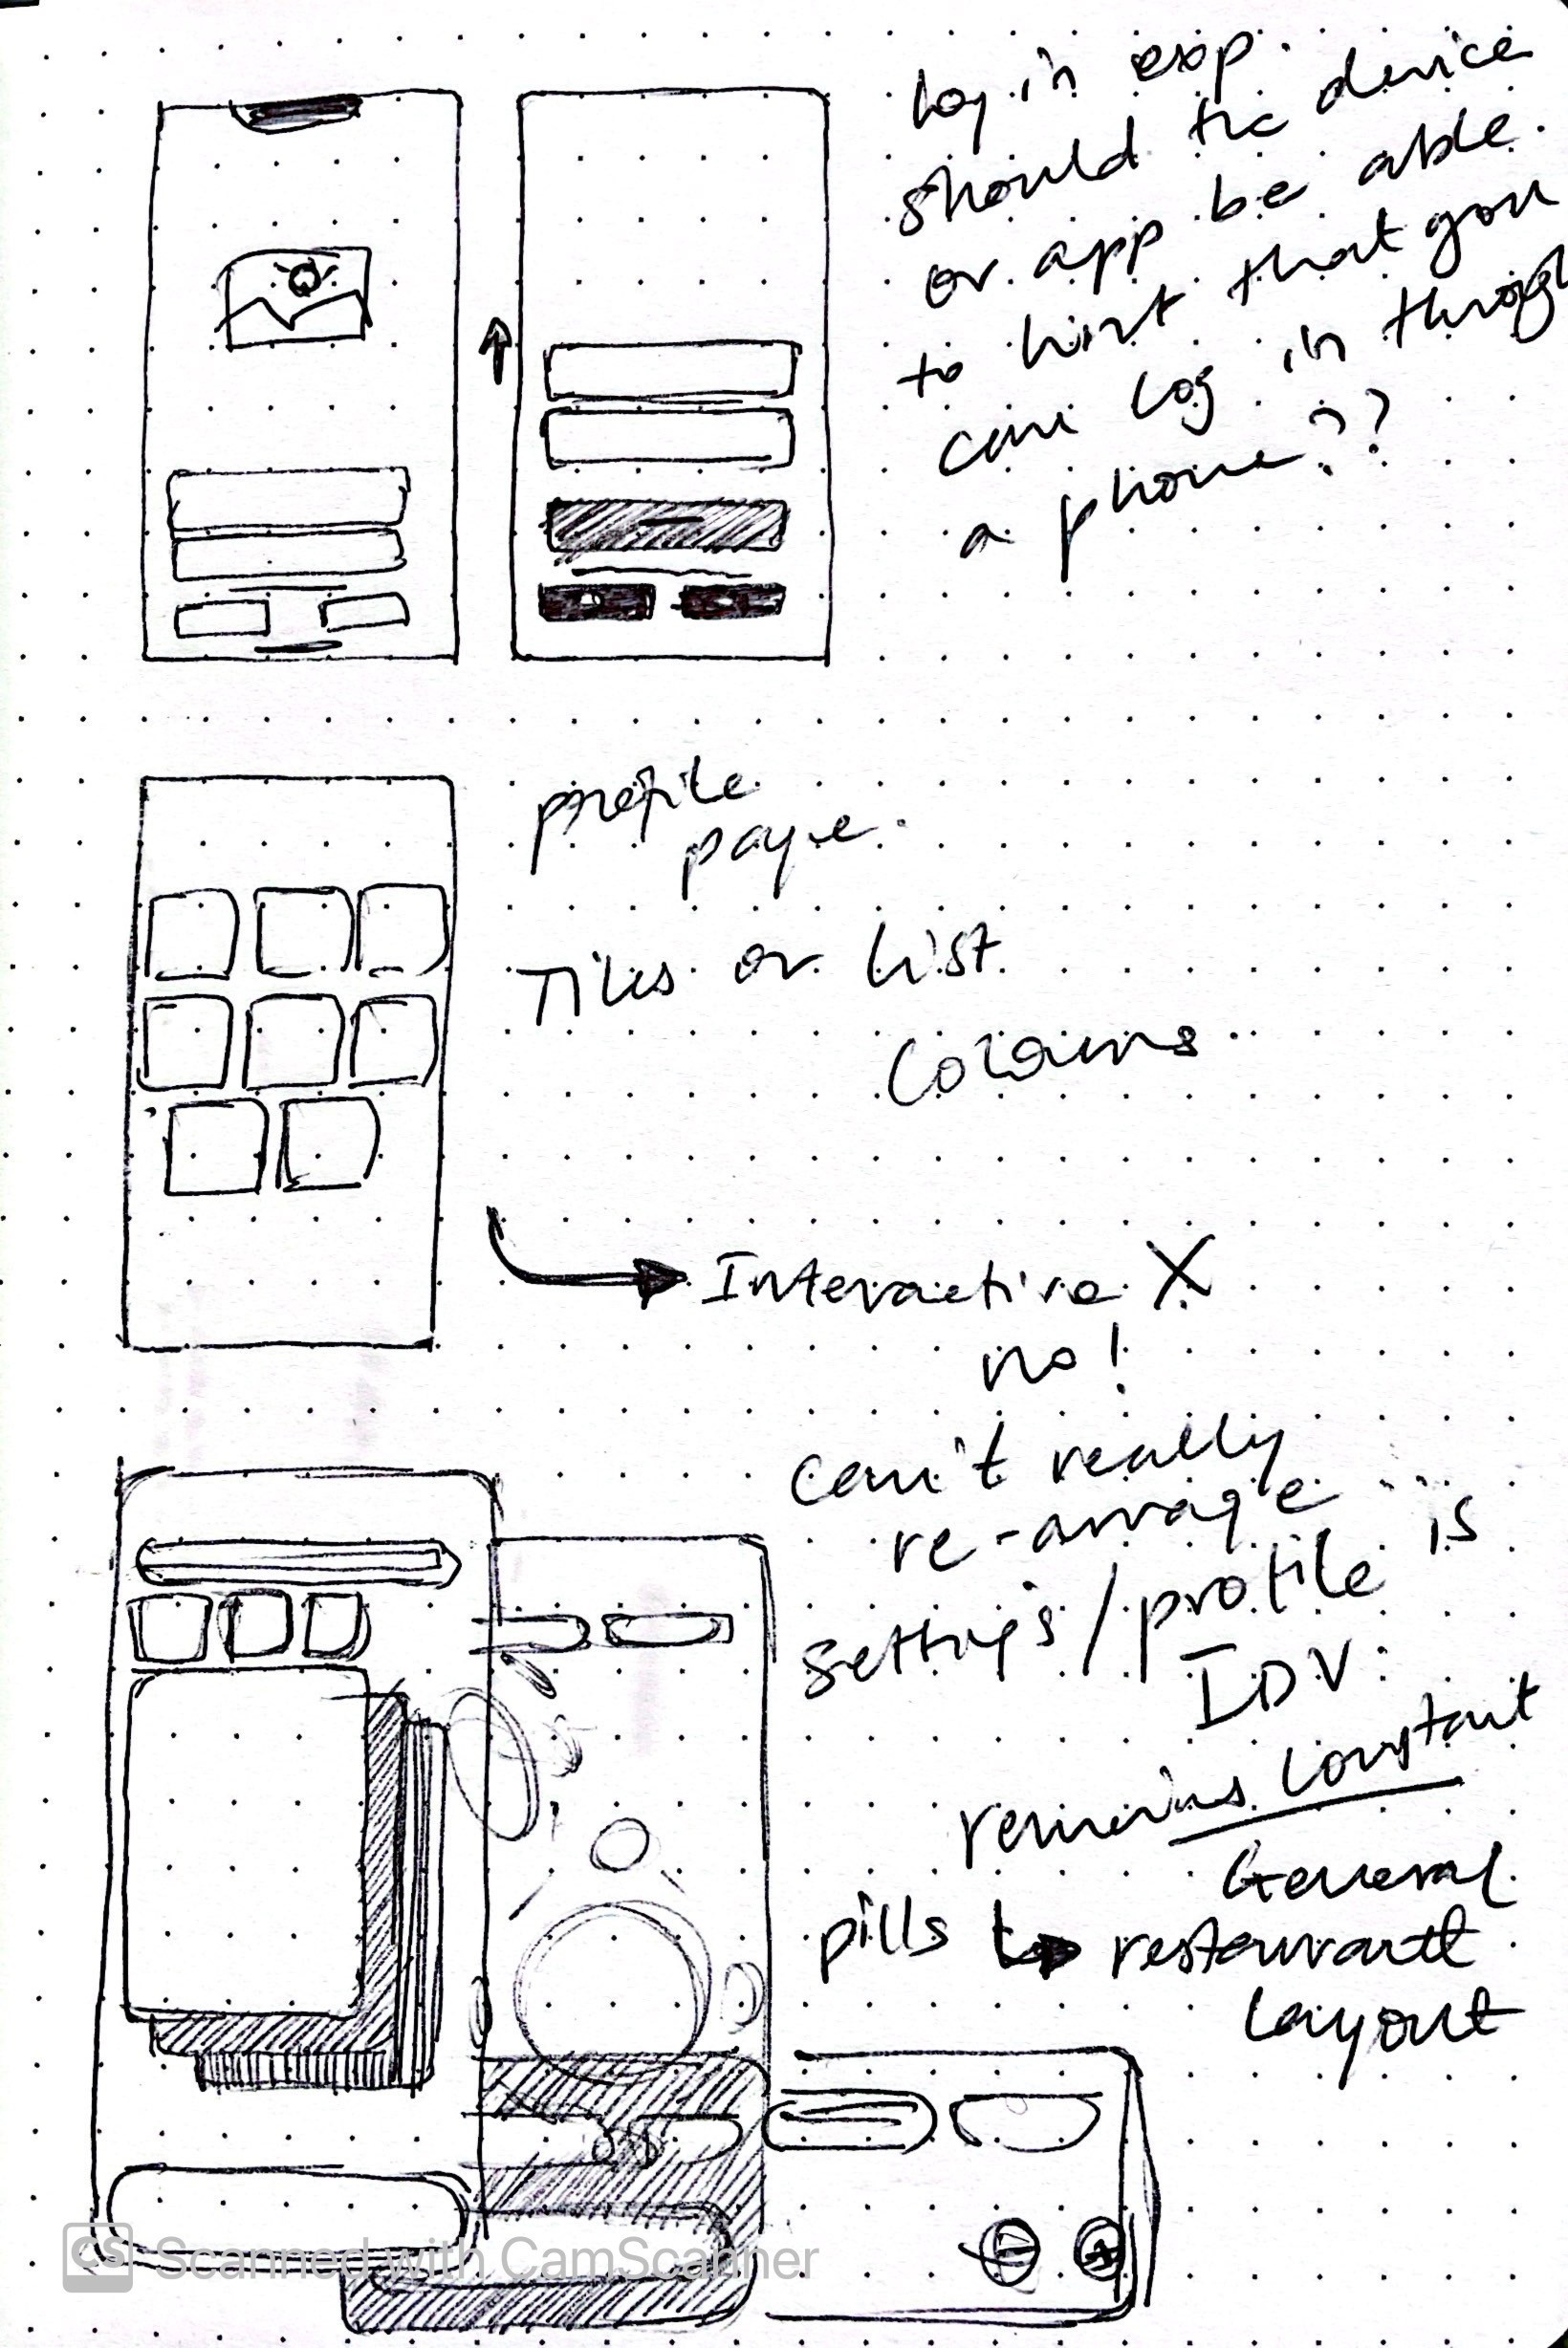 log in exp.
should the device
or app be able.
to hint that you
can log in throgh
a phone??
profile
page.
Tiles or list
Interactive X
no!
can't really
re-arrage
settings/profile is
IDV.
remains constant
General
pills → restaurant
layout
CS Scanned with CamScanner